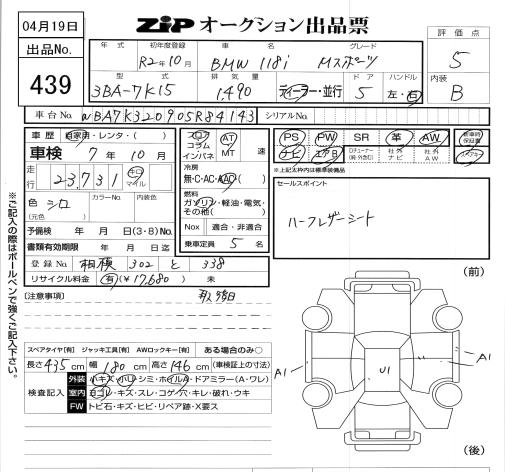 04月19日
ZiP オークション出品票
出品No.
439
年式 初年度登録 車名 グレード
R2年10月 BMW 118i Mスポーツ
型式 排気量 ドア ハンドル
3BA-7K15 1,490 ディーラー・並行 5 左・右
評価点
5
内装
B
車台No. WBA7K320905R84143 シリアルNo.
車歴 自家用・レンタ・( )
車検 7年10月
走行 23,731 キロ マイル
色 シロ カラーNo. 内装色
(元色 )
予備検 年 月 日(3・8)No.
書類有効期限 年 月 日迄
登録No. 相模 302 と 338
リサイクル料金 有(¥17,680 ) 無
フロア コラム インパネ AT MT 速
冷房
無・C・AC・AAC( )
燃料
ガソリン・軽油・電気・その他( )
Nox 適合・非適合
乗車定員 5 名
PS PW SR 革 AW 新車時保証書
ナビ エアB 社外ナビ 社外AW
※上記太枠内は標準装備品
セールスポイント
ハーフレザーシート
※ご記入の際はボールペンで強くご記入下さい。
[注意事項]
(前)
スペアタイヤ[有] ジャッキ工具[有] AWロックキー[有] ある場合のみ○
長さ 435 cm 幅 180 cm 高さ 146 cm (車検証上の寸法)
検査記入
外装 小キズ・凹・シミ・ホイルA・ドアミラー(A・ワレ)
室内 ヨゴレ・キズ・スレ・コゲ穴・キレ・破れ・ウキ
FW トビ石・キズ・ヒビ・リペア跡・X要ス
A1 U1 A1
(後)